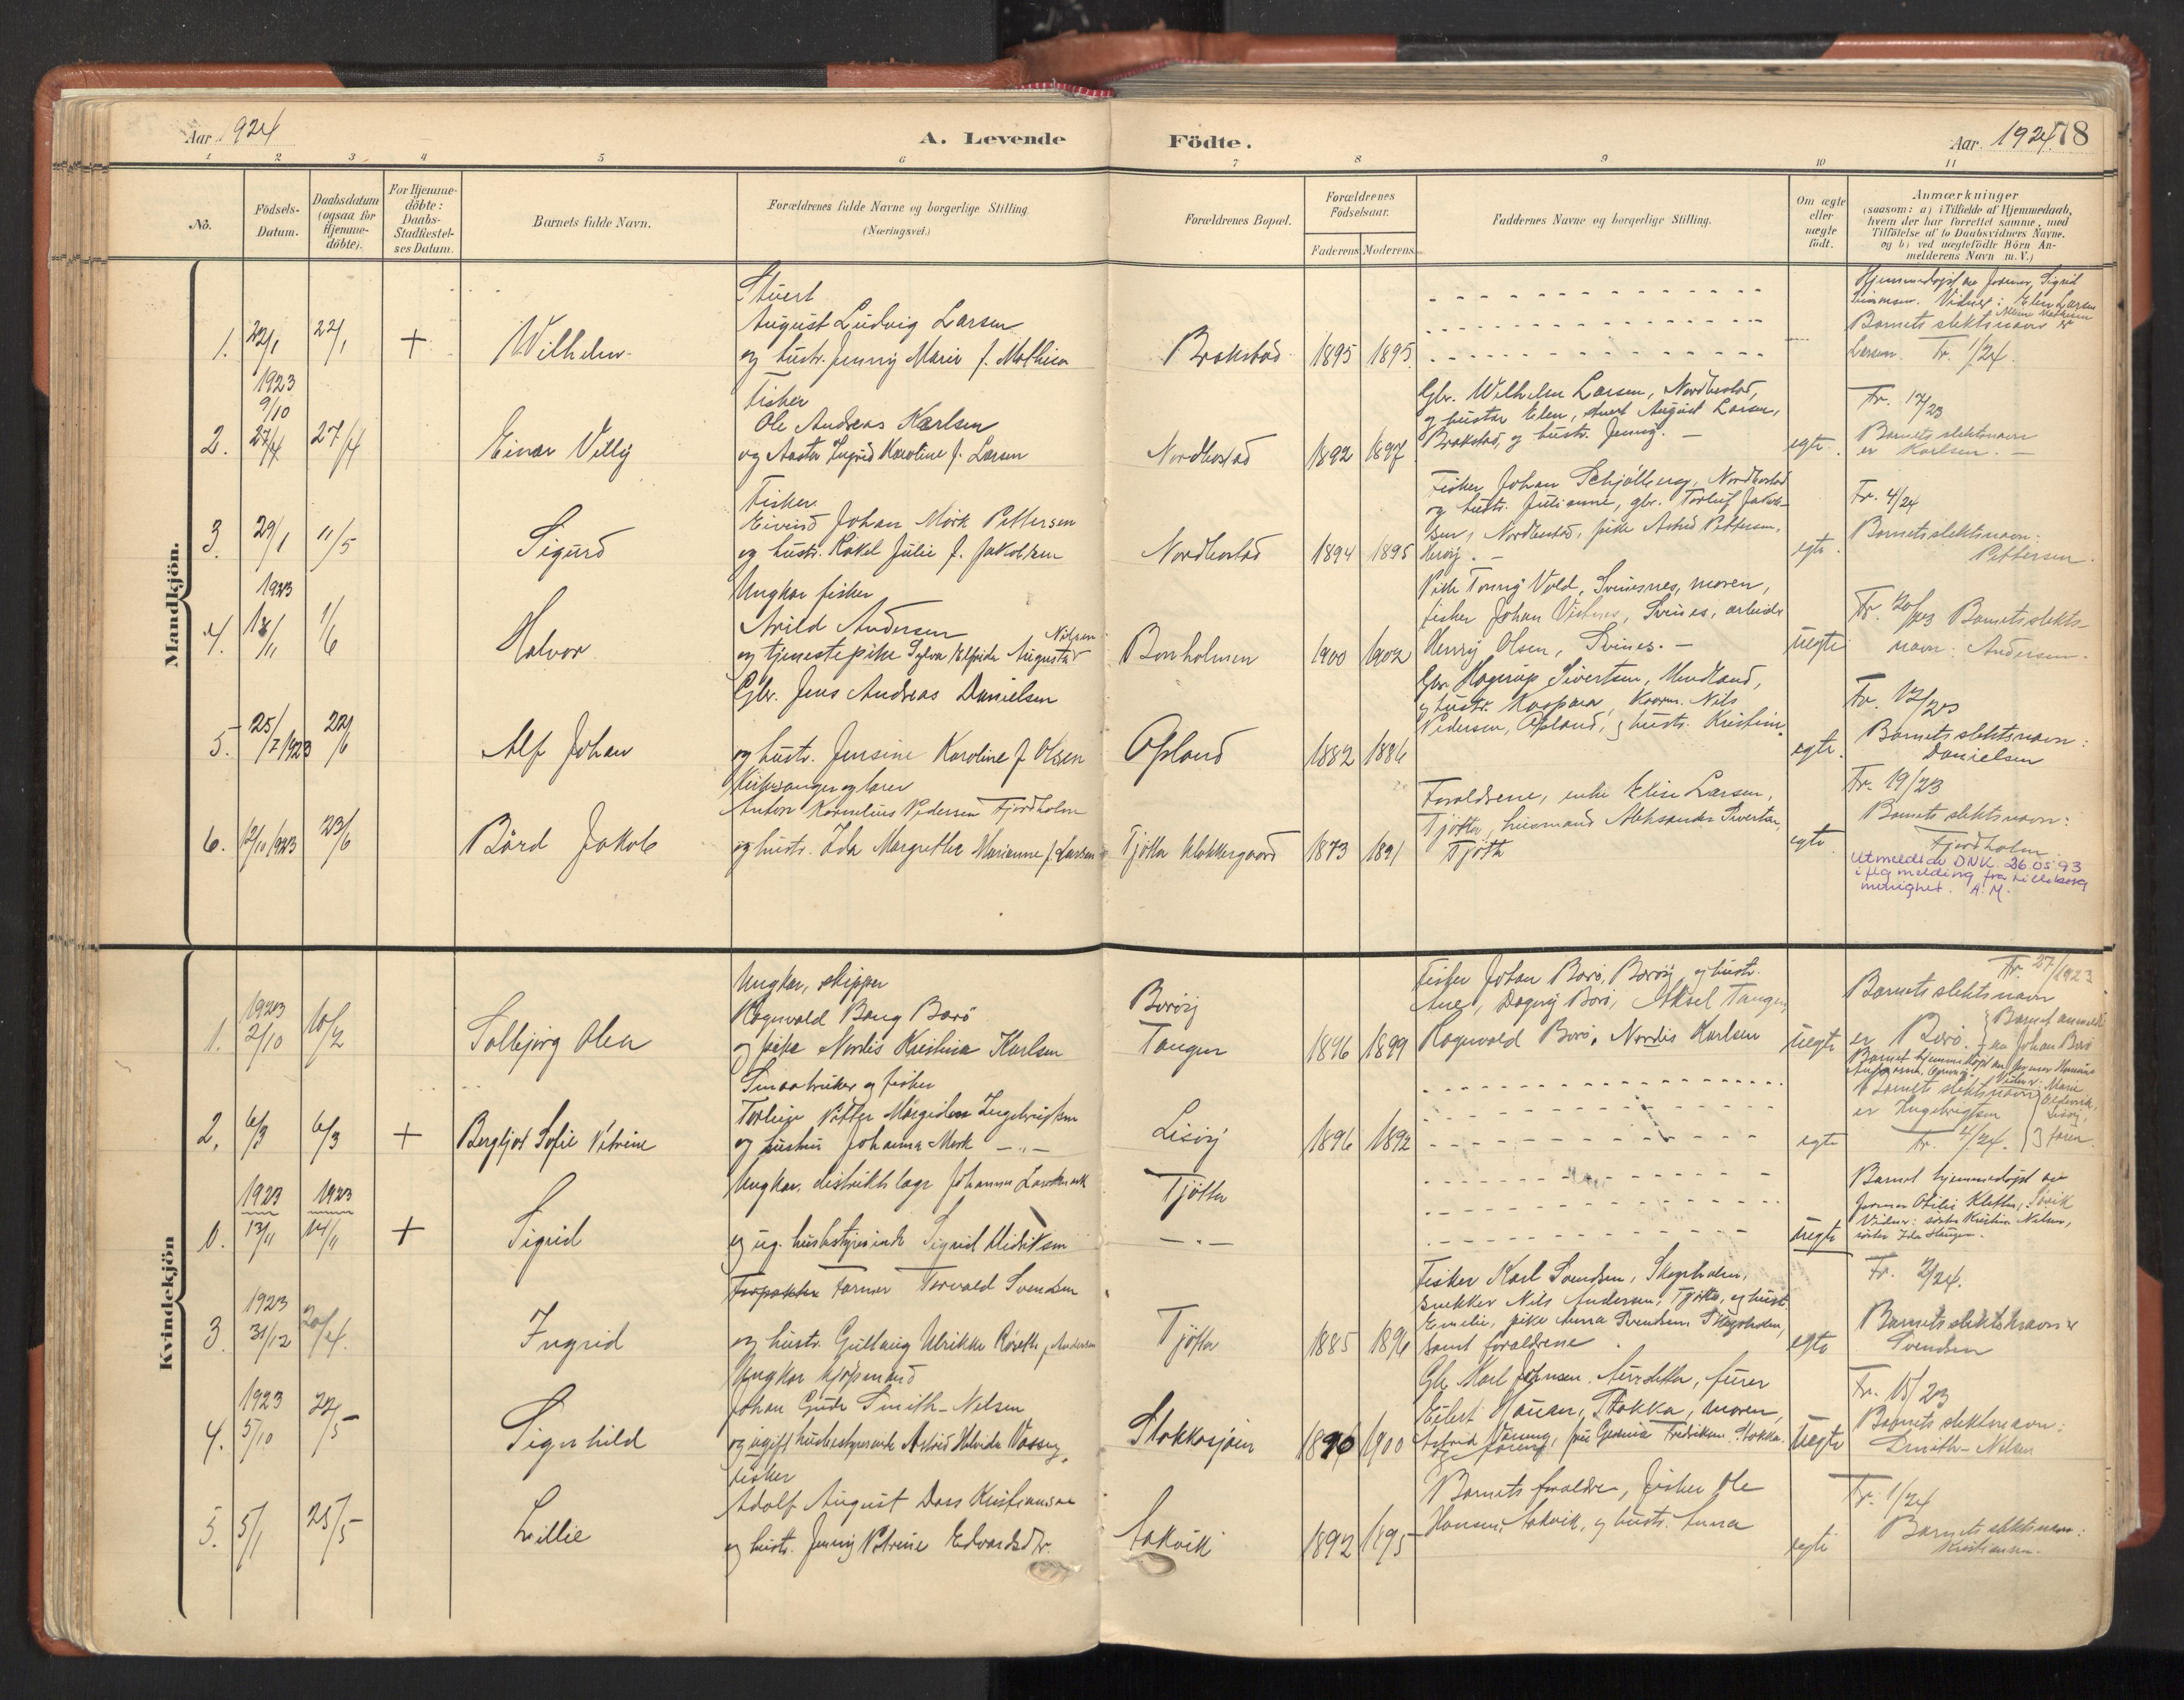 Aar 1924
A. Levende Födte.
Aar. 1924.
78
1 2 3 4 5 6 7 8 9 10 11
No.
Födsels-
Datum.
Daabsdatum
(ogsaa for
Hjemme-
döbte).
For Hjemme-
döbte:
Daabs-
Stadfæstel-
ses Datum.
Barnets fulde Navn.
Forældrenes fulde Navne og borgerlige Stilling
(Næringsvei.)
Forældrenes Bopæl.
Forældrenes
Födselsaar.
Faderens Moderens
Faddernes Navne og borgerlige Stilling.
Om ægte
eller
uægte
födt.
Anmærkninger
(saasom: a) i Tilfælde af Hjemmedaab,
hvem der har forrettet samme, med
Tilföielse af to Daabsvidners Navne.
og b) ved uægtefödte Börn An-
melderens Navn m. V.)
Mandkjön.
1. 22/1 22/1 + Wilhelm
Stuert
August Ludvig Larsen
og hustr. Jenny Marie f.
Brakstad 1895 1895
Hjemmedøpt av Jormor Sigrid
Simonsen. Vidner: Elen Larsen
Barnets slektsnavn er
Larsen. Fr. 1/24.
2. 1923
9/10
27/4 27/4 Einar Villy
Fisker
Ole Andreas Karlsen
og Ingrid Karoline f. Larsen
Nordbostad 1892 1897
Gbr. Wilhelm Larsen, Nordbostad,
og hustru Elen, stuert August Larsen,
Brakstad, og hustr. Jenny. —
egte.
Fr. 17/23
Barnets slektsnavn
er Karlsen. —
3. 29/1 11/5 Sigurd
Fisker
Eivind Johan Mörk Pettersen
og hustr. Rakel Julie f. Jakobsen
Nordbostad 1894 1895
Fisker Johan Schjølberg, Nordbostad
og hustr. Julianne, gbr. Torleif Jakob-
sen, Nordbostad, pike Astrid Pettersen,
Herøy. —
egte.
Fr. 4/24
Barnets slektsnavn:
Pettersen.
4. 1923
18/11 1/6 Halvor
Ungkar fisker
Arild Andersen
og tjenestepike Sylva Elfrida Augusta Nilsen
Bonholmen 1900 1902
Pike Tonny Vold, Svinesnes, moren,
fisker Johan Svines, arbeider
Henry Olsen, Svines. —
uegte
Fr. 20/23 Barnets slekts-
navn: Andersen.
5. 25/7 1923 22/6 Alf Johan
Gbr. Jens Andreas Danielsen
og hustr. Jensine Karoline f. Olsen
Opland 1882 1886
Gbr. Hagerup Sivertsen, Mindland,
og hustr. Kaspara, Kaarm. Nils
Pedersen, Opland, og hustr. Kristine.
egte.
Fr. 12/23
Barnets slektsnavn:
Danielsen
6. 12/10 1923 23/6 Bård Jakob
Kirkesanger og lærer
Anton Kornelius Pedersen Fjordholm
og hustr. Ida Margrethe Marianne f. Larsen
Tjötta klokkergaard 1873 1891
Foreldrene, enke Elise Larsen,
Tjötta, husmand Aleksander Sivertsen,
Tjötta
egte
Fr. 19/23
Barnets slektsnavn:
Fjordholm.
Utmeldt av DNK 26.05.93
iflg melding fra Lilleborg
menighet. A.M.
Kvindekjön
1. 1923
2/10 10/2 Solbjörg Olea
Ungkar, skipper
Ragnvald Bang Barö
og pike Nordis Kristina Karlsen
Borøy
Tangen 1896 1899
Fisker Johan Barö, Borøy, og hustr.
Ane, Dagny Barö, Aksel Tangen,
Ragnvald Barö, Nordis Karlsen
uegte
Fr. 27/1923
Barnets slektsnavn
er Barö. Barnet anmeldt
av Johan Barö
2. 6/3 6/3 + Bergljot Sofie Petrine
Smaabruker og fisker
Torleif Petter Ingebrigtsen
og hustru Johanna Mork — „ —
Lisøy 1896 1892
egte
Barnet hjemmedøpt av
Barnets slektsnavn
er Ingebrigtsen
Fr. 4/24.
0. 1923
13/11 1923
14/11 + Sigrid
Ungkar, distriktslæge Johannes Landmark
og ug. husbestyrerinde Sigrid Didriksen
Tjötta
— „ —
uegte
Barnet hjemmedöpt av
Jormor Otilie Kletten, Søvik
Vidner: søster Kristine Nilsen,
søster Ida Haugen.
3. 1923
31/12 20/4. Ingrid
Forpakter Farmer Torvald Svendsen
og hustr. Gullaug Ulrikke f. Andersen
Tjötta 1885 1896
Fisker Karl Svendsen, Skogsholm,
snekker Nils Andersen, Tjötta, og hustr.
Emelie, pike Anna Svendsen, Skogsholm,
samt foreldrene
egte
Fr. 2/24.
Barnets slektsnavn er
Svendsen
4. 1923
5/10 22/5 Signhild
Ungkar kjöpmand
Johan Gude Smith-Nilsen
og ugift husbestyrerinde Astrid Halvida Vasseng
Stokkasjøen 1890 1900
Gbr. Karl Johnsen, fører
Eilert Hauan, Stokka, moren,
Astrid frk. Gevinia Fredriksen Stokka.
uegte
Fr. 15/23
Barnets slektsnavn:
Smith-Nilsen
5. 5/1 25/5 Lillie
fisker
Adolf August Dass Kristiansen
og hustr. Jenny Petrine Edvardsdtr.
Aakvik 1892 1895
Barnets foreldre, fisker Ole
Hansen, Aakvik, og hustr. Anna
egte
Fr. 1/24
Barnets slektsnavn:
Kristiansen.